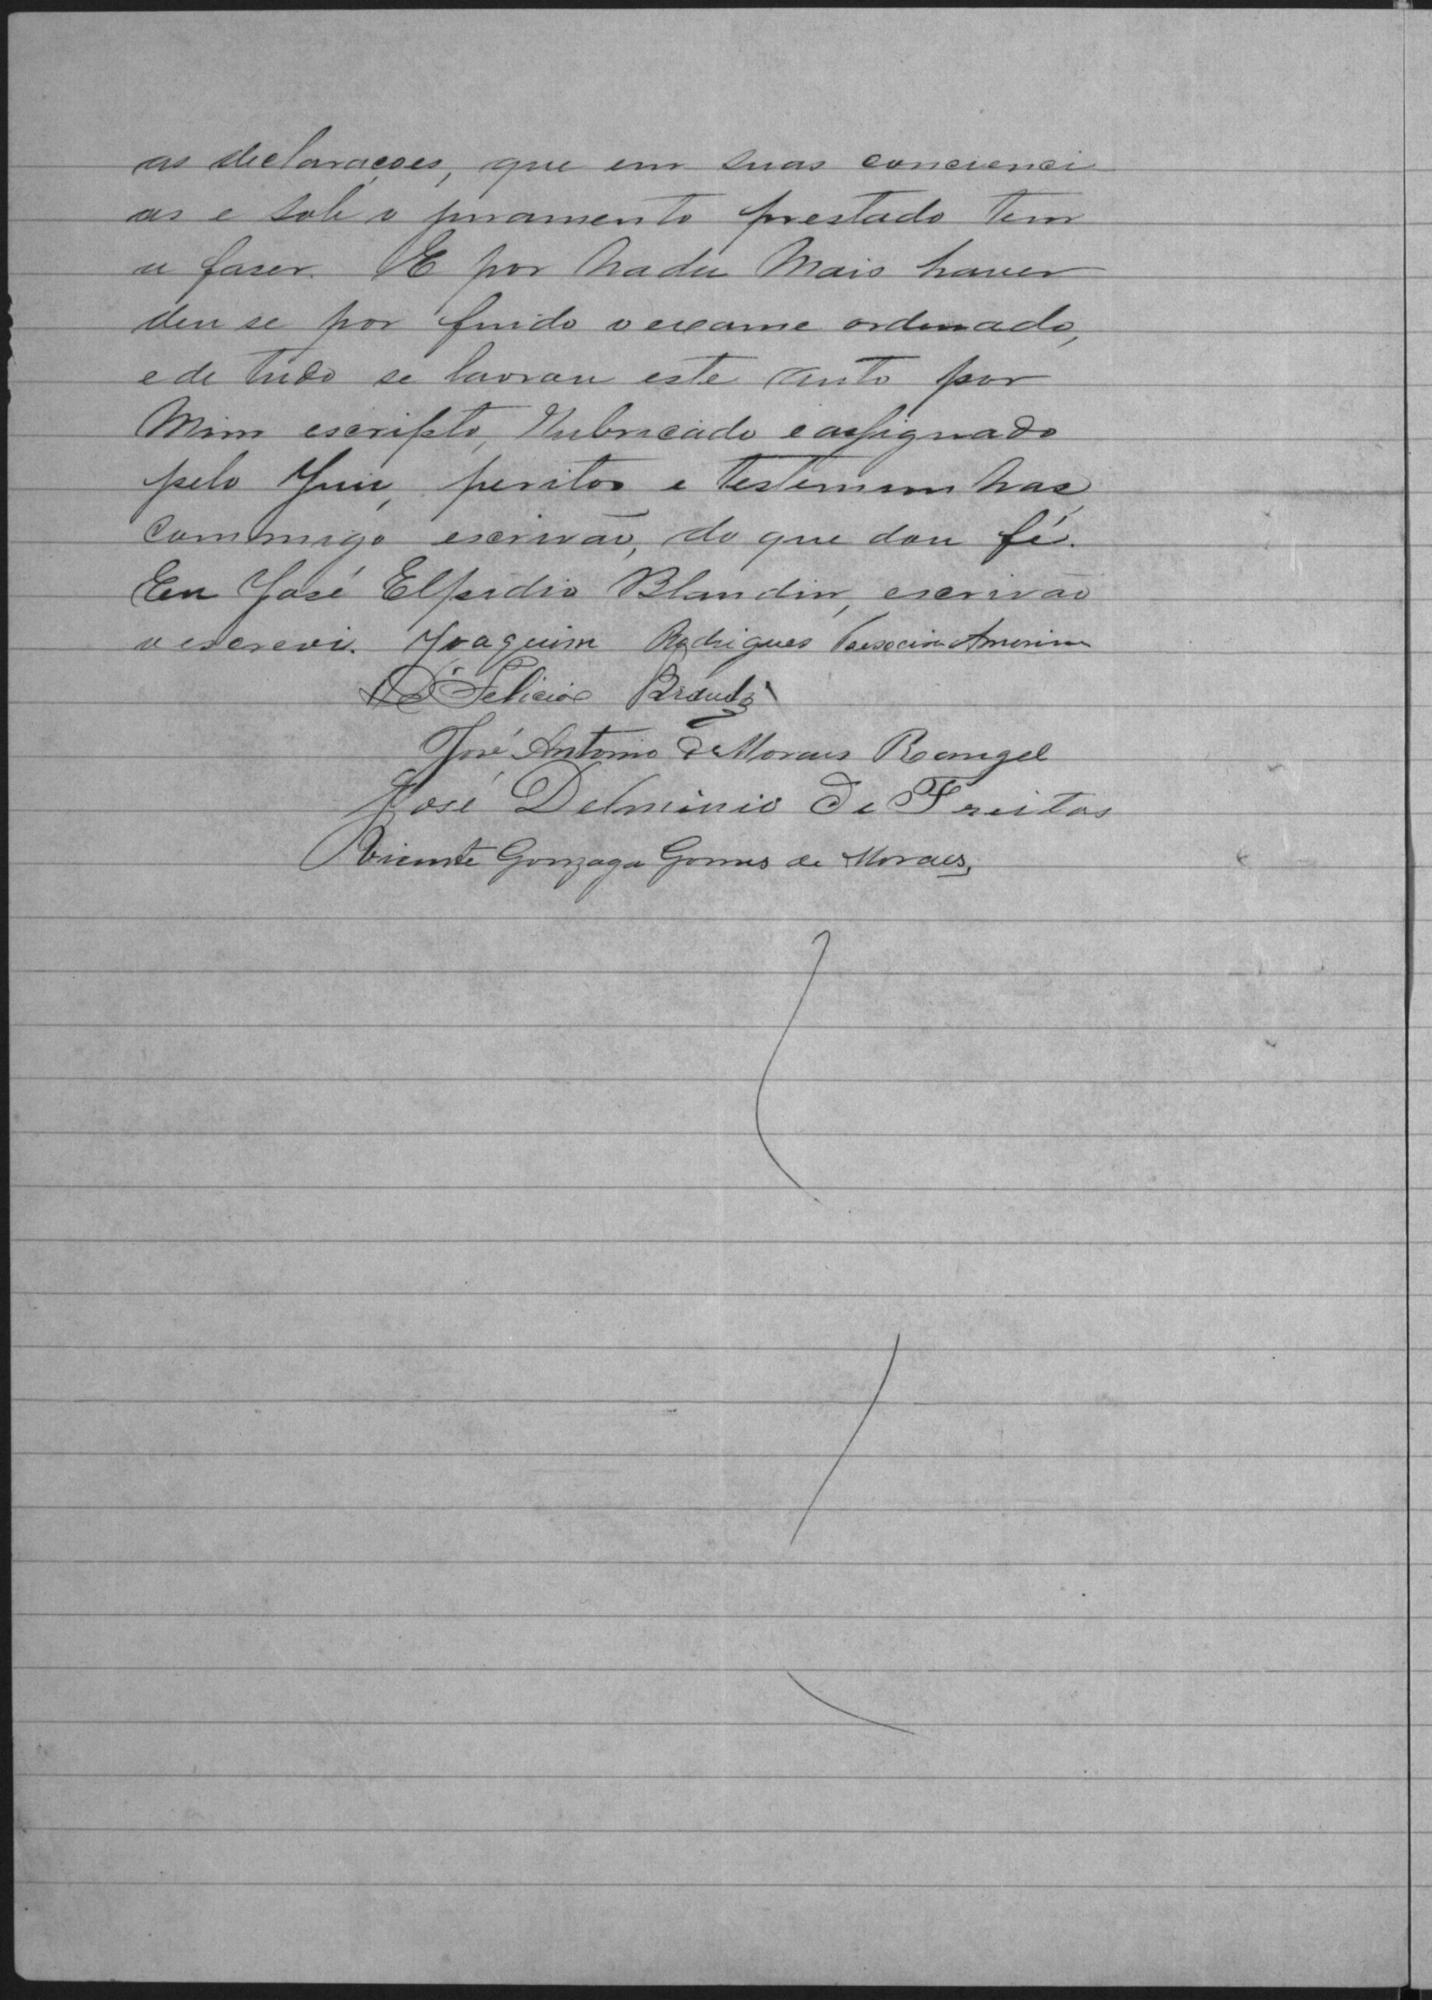 as declarações, que em suas concienci
as e sob o juramento prestado tem
a faser. E por nada mais haver
deu se por findo o exame ordenado,
e de tudo se lavrou este auto por
mim escripto, rubricado e assignado
pelo Juiz, peritos e testemunhas,
commigo escrivão, do que dou fé.
Eu José Elpidio Blandin, escrivão
o escrevi. Joaquim Rodrigues Amorim
Felicio Brandão
José Antonio de Moraes Rangel
José Delminio de Freitas
Vicente Gonzaga Gomes de Moraes,